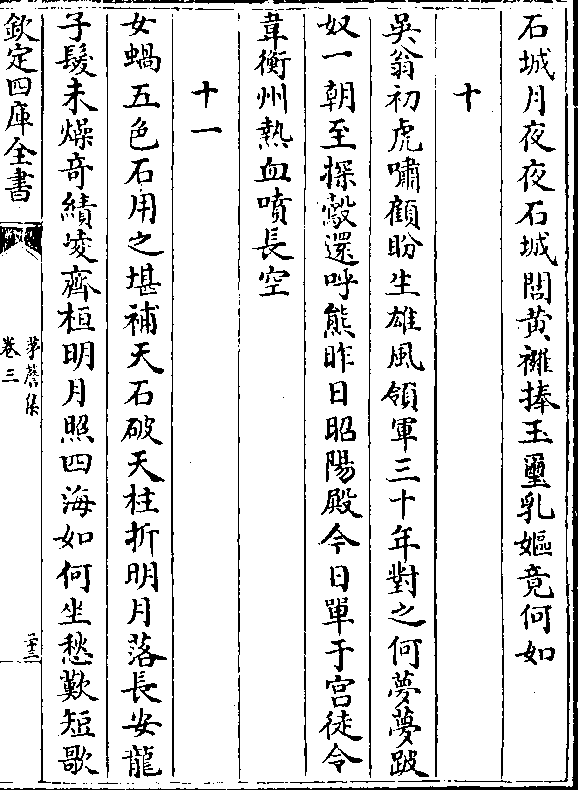 石城月夜夜石城閭黄襬捧玉璽乳嫗竟何如
十
吳翁初虎嘯顧盼生雄風領軍三十年對之何夢夢跛
奴一朝至探鷇還呼熊昨日昭陽殿今日單于宫徒令
韋衡州熱血噴長空
十一
女蝸五色石用之堪補天石破天柱折明月落長安龍
子髮未燥竒績凌齊桓明月照四海如何坐愁歎短歌
欽定四庫全書
茅簷集
卷三
二十三